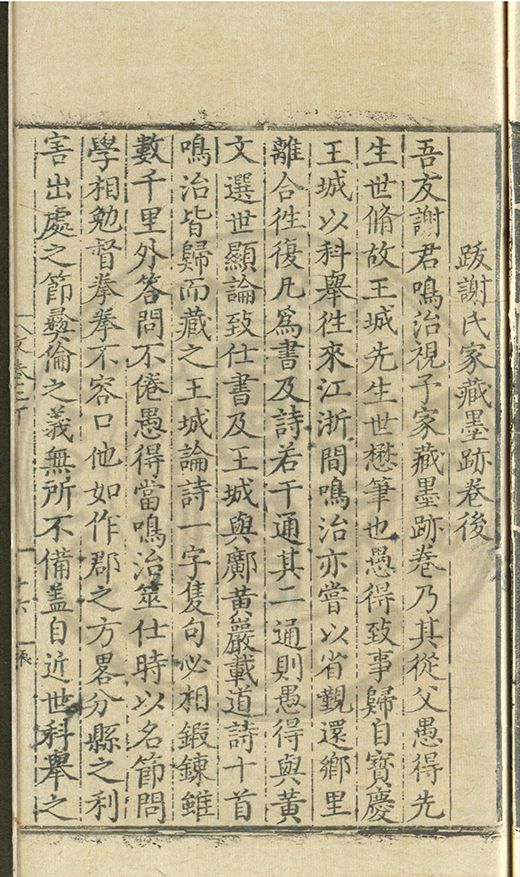 跋謝氏家藏墨跡卷後
吾友謝君鳴治視予家藏墨跡卷乃其從父愚得先
生世脩故王城先生世懋筆也愚得致事歸自寶慶
王城以科舉徃來江浙間鳴治亦嘗以省覲還鄉里
離合徃復凡為書及詩若干通其二通則愚得與黃
文選世顯論致仕書及王城與鄺黃巖載道詩十首
鳴治皆歸而藏之王城論詩一字隻句必相鍛鍊雖
數千里外答問不倦愚得當鳴治筮仕時以名節問
學相勉督拳拳不容口他如作郡之方畧分縣之利
害出處之節彜倫之義無所不備盖自近世科舉之